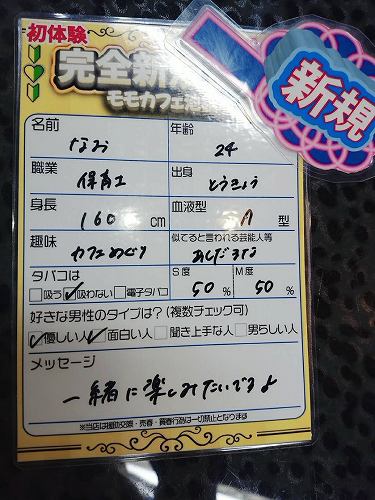 初体験
完全新規
モモカフェ
新規
名前 なお 年齢 24
職業 保育士 出身 とうきょう
身長 160cm 血液型 A型
趣味 カフェめぐり 似てると言われる芸能人等 あしだまな
タバコは S度 M度
□吸う ☑吸わない □電子タバコ 50% 50%
好きな男性のタイプは？(複数チェック可)
☑優しい人 ☑面白い人 □聞き上手な人 □男らしい人
メッセージ
一緒に楽しみたいです♪
※当店は援助交際・売春・買春行為は一切禁止となります